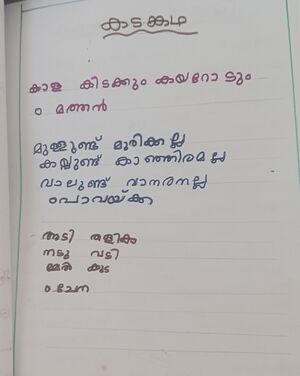 കടങ്കഥ
കാള കിടക്കും കയറോ ടും
മത്തൻ
മുള്ളുണ്ട് മുരിക്കല്ല
കയ്പുണ്ട് കാഞ്ഞിരമല്ല
വാലുണ്ട് വാനരനല്ല
പാവയ്ക്ക
അടി തളിക
നടു വടി
മേൽ കുട
ചേന